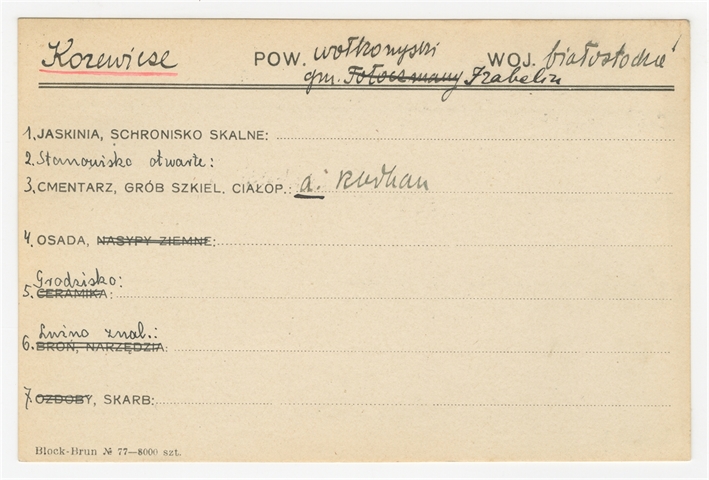 Korzewicze POW. wołkowyski WOJ. białostockie
gm. Tołoczmany Izabelin
1. JASKINIA, SCHRONISKO SKALNE:
2. Stanowisko otwarte:
3. CMENTARZ, GRÓB SZKIEL. CIAŁOP.: a: kurhan
4. OSADA, NASYPY ZIEMNE:
Grodzisko:
5. CERAMIKA:
Luźno znal.:
6. BROŃ, NARZĘDZIA:
7. OZDOBY, SKARB:
Block-Brun № 77—8000 szt.